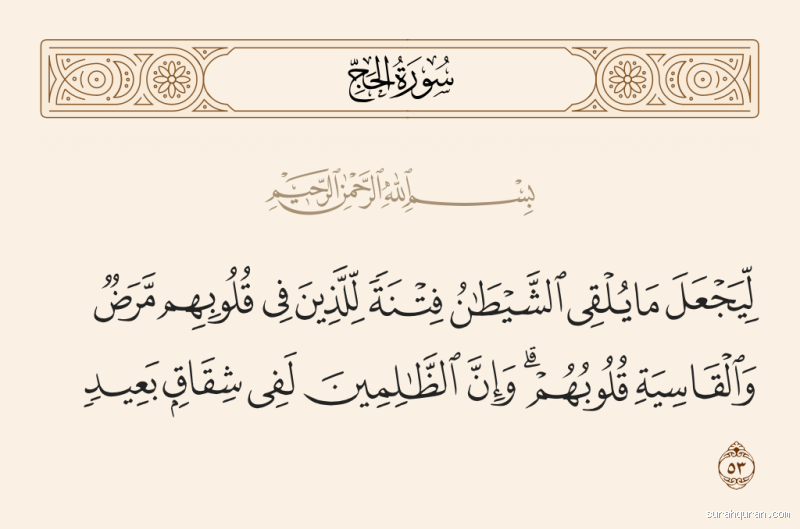 سُورَةُ الحَجِّ
بِسْمِ ٱللَّهِ ٱلرَّحْمَٰنِ ٱلرَّحِيمِ
لِّيَجْعَلَ مَا يُلْقِى ٱلشَّيْطَٰنُ فِتْنَةً لِّلَّذِينَ فِى قُلُوبِهِم مَّرَضٌ
وَٱلْقَاسِيَةِ قُلُوبُهُمْ ۗ وَإِنَّ ٱلظَّٰلِمِينَ لَفِى شِقَاقٍۭ بَعِيدٍ
٥٣
surahquran.com